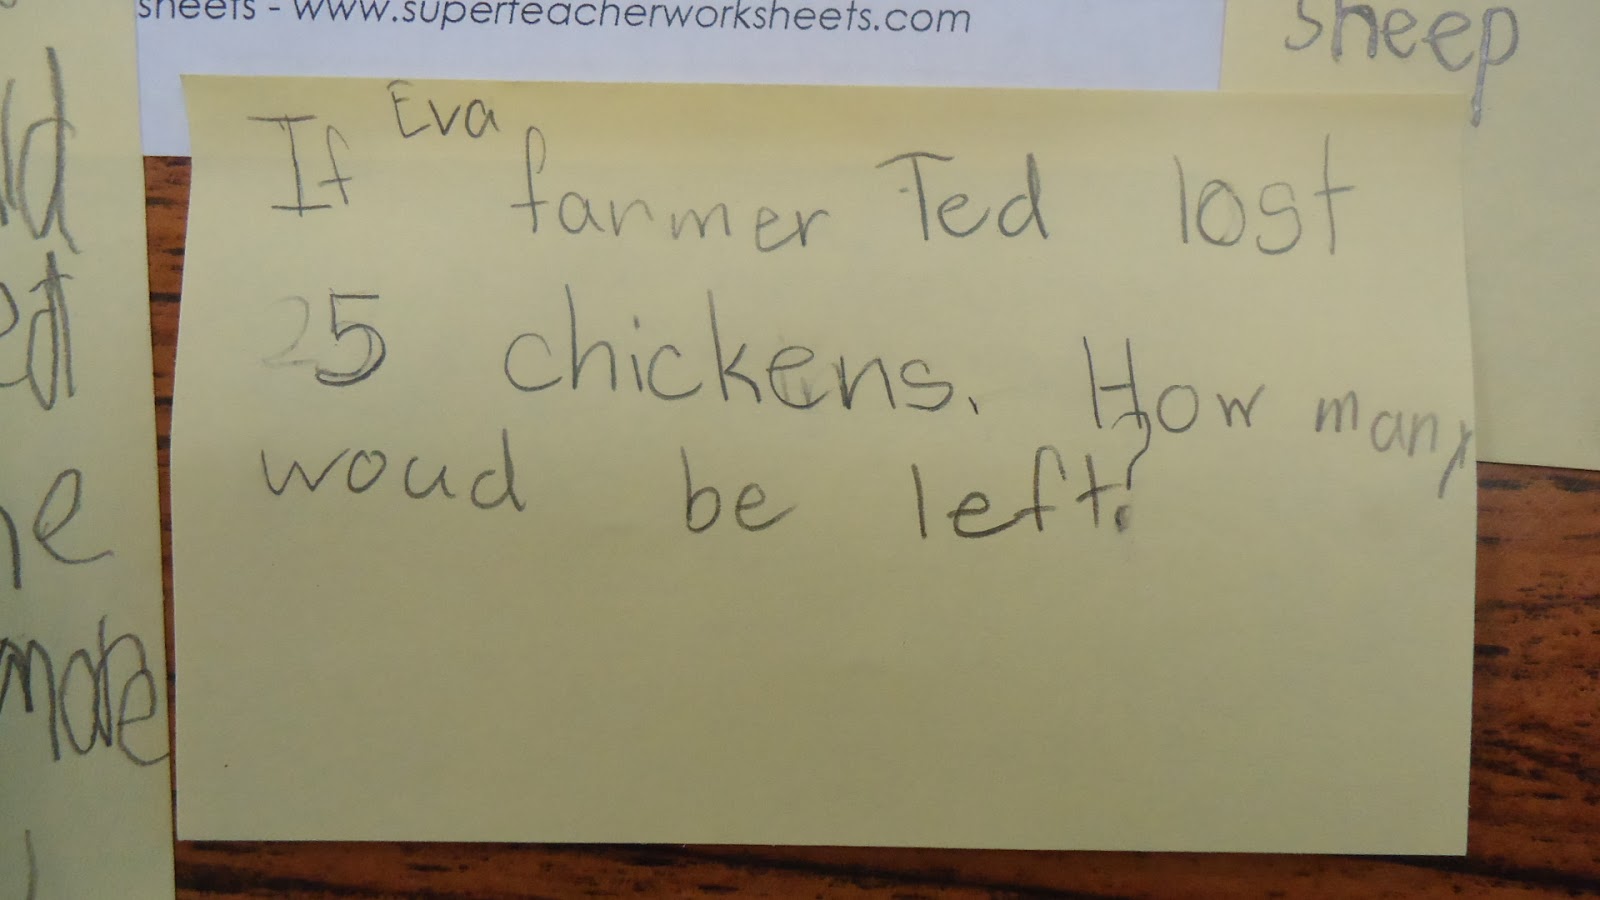 sheets - www.superteacherworksheets.com
sheep
Eva
If farmer Ted lost
25 chickens. How many
woud be left?
more